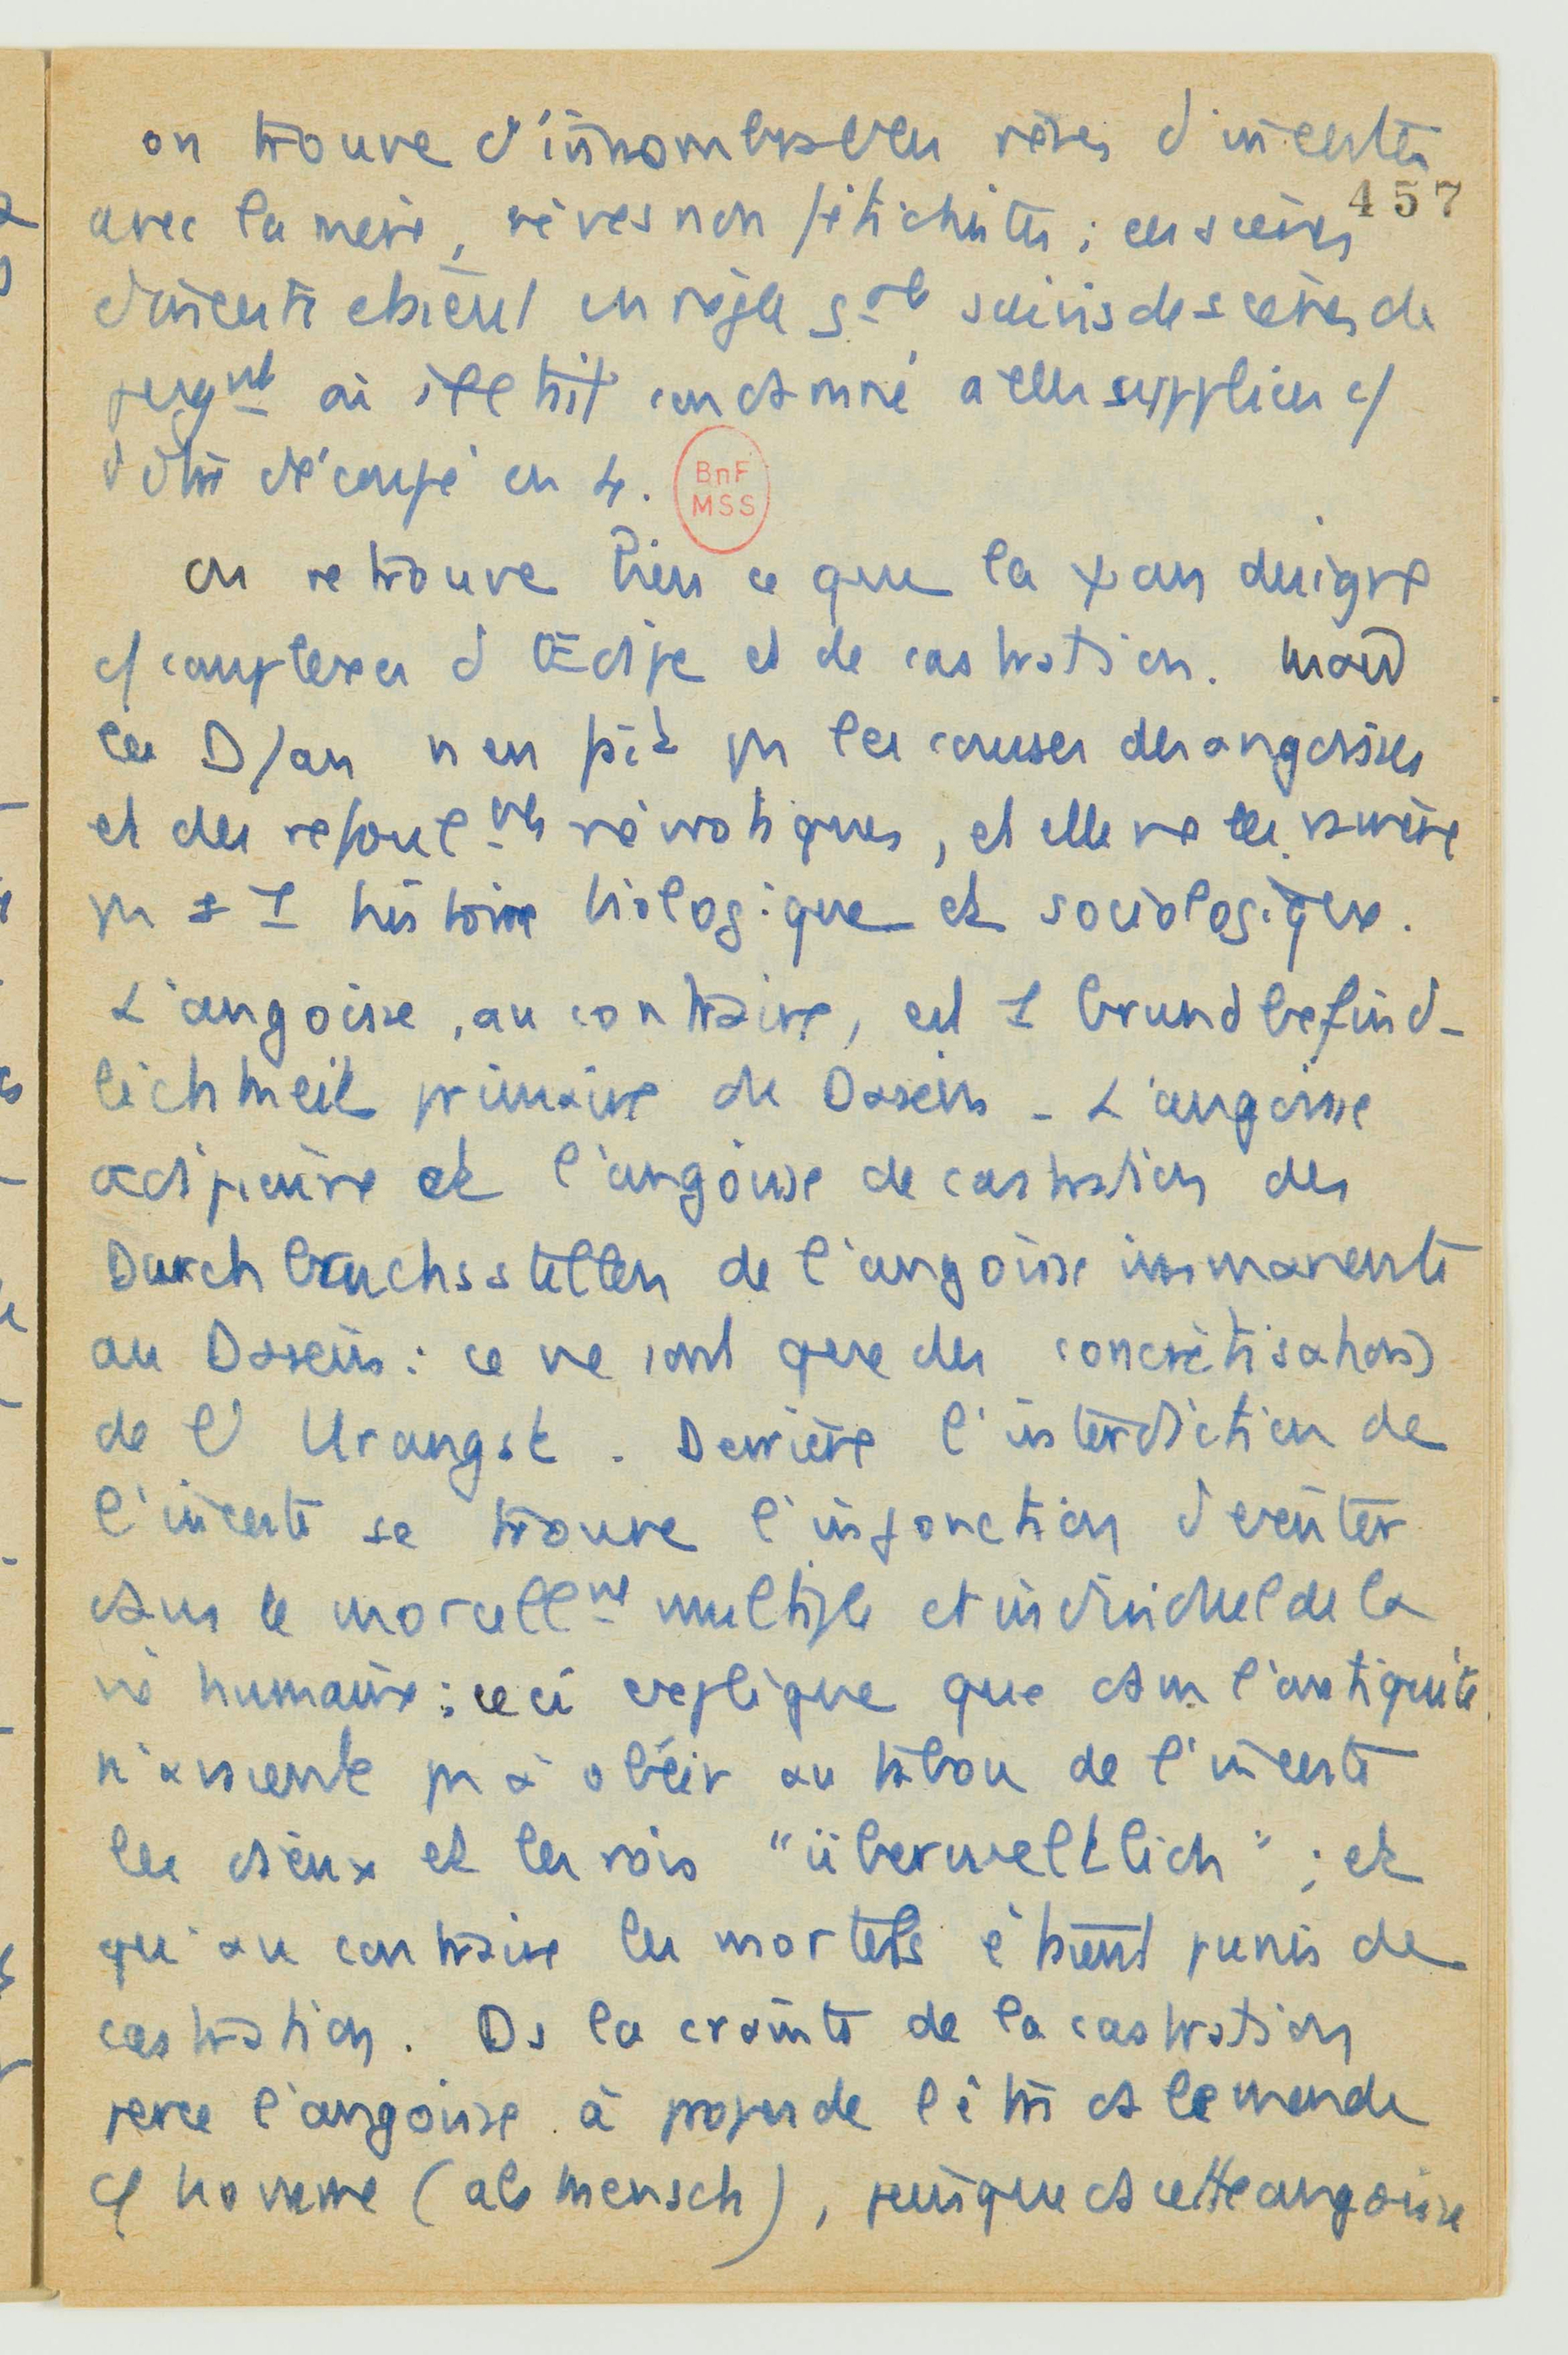 on trouve d'innombrables rêves d'incestes
457
avec la mère, rêves non fétichistes ; ces scènes
d'inceste étaient en règle gale suivis de scènes de
jugmt où il était condamné à des supplices c/
d'être découpé en 4.
BnF
MSS
on retrouve bien ce que la ψan désigne
c/ complexes d'Œdipe et de castration. Mais
la D/an n'en fait pas les causes des angoisses
et des refoulmts névrotiques, et elle ne les ramène
pas à 1 histoire biologique et sociologique.
L'angoisse, au contraire, est 1 Grundbefind-
lichkeit primaire du Dasein - L'angoisse
œdipienne et l'angoisse de castration des
Durchbruchsstellen de l'angoisse immanente
au Dasein : ce ne sont que des concrétisations
de l'Urangst. Derrière l'interdiction de
l'inceste se trouve l'injonction d'exister
dans le morcellmt multiple et individuel de la
vie humaine : ceci explique que dans l'antiquité
n'aient pas à obéir au tabou de l'inceste
les dieux et les rois "überweltlich" ; et
qu'au contraire les mortels étaient punis de
castration. Ds la crainte de la castration
perce l'angoisse à propos de l'être ds le monde
c/ homme (als Mensch), puisque ds cette angoisse